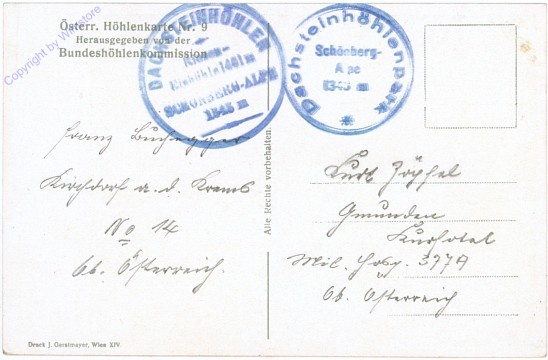 Österr. Höhlenkarte Nr. 9
Herausgegeben von der
Bundeshöhlenkommission
DACHSTEINHÖHLEN
Riesen-
Eishöhle 1461 m
SCHÖNBERG-ALPE
1345 m
Dachsteinhöhlenpark
Schönberg-
Alpe
1345 m
Franz Buchegger
Kirchdorf a. d. Krems
No 14
Ob. Österreich.
Alle Rechte vorbehalten.
Kurt Zöpfel
Gmunden
Kurhotel
Mil. Hosp. 377A
Ob. Österreich
Druck J. Gerstmayer, Wien XIV.